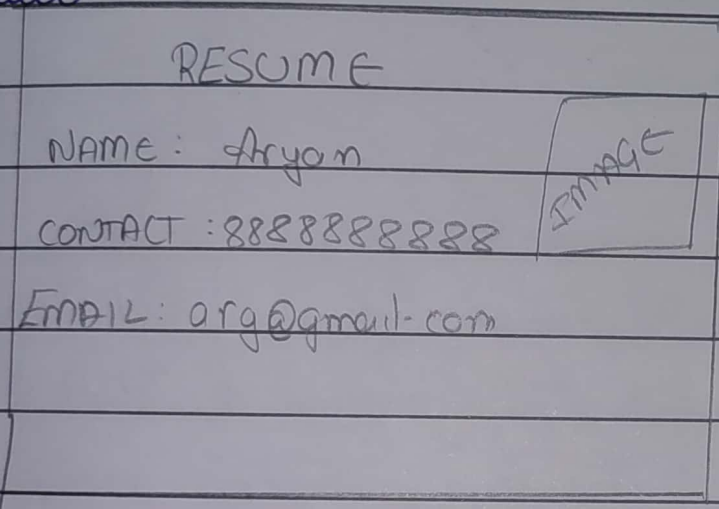 RESUME
NAME: Aryan
IMAGE
CONTACT: 8888888888
EMAIL: arg@gmail.com